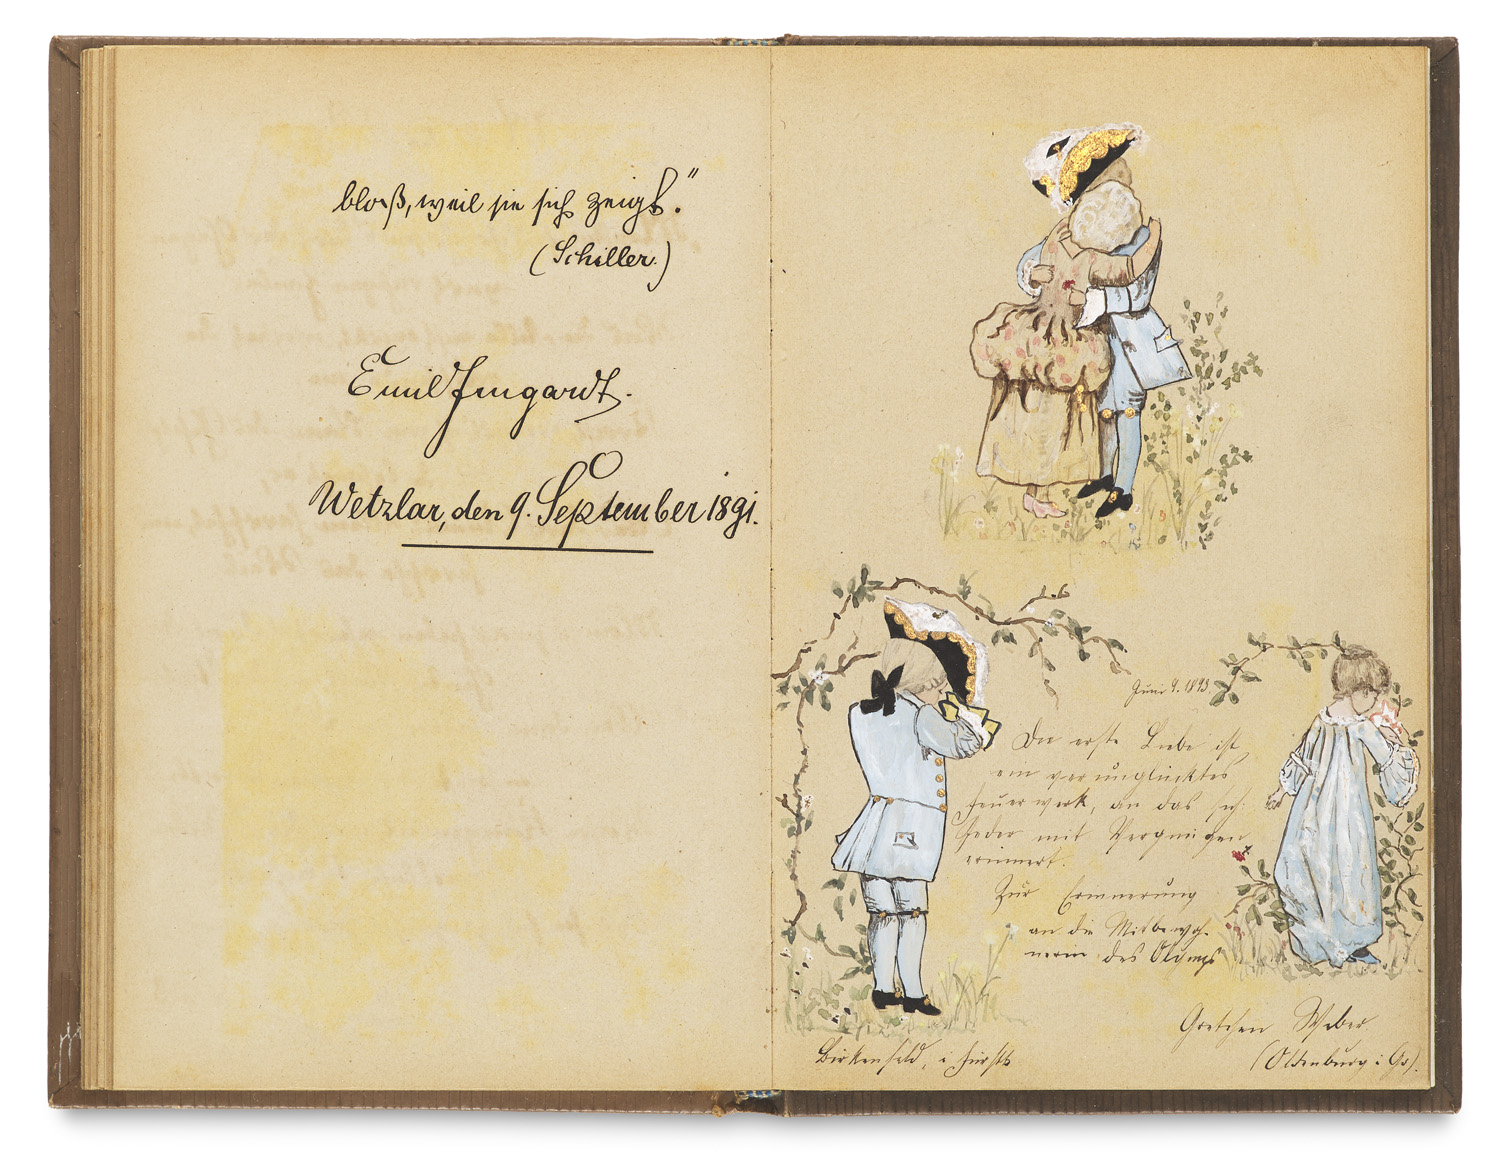 bloß, weil sie sich zeigt."
(Schiller.)
Emil Irmgardt.
Wetzlar, den 9. September 1891.
Juni 9. 1893.
Die erste Liebe ist
ein verunglücktes
Feuerwerk, an das sich
Jeder mit Vergnügen
erinnert.
Zur Erinnerung
an die Mitbewoh-
nerin des Olymps
Gretchen Weber
(Oldenburg i. Gr.).
Birkenfeld, i. Fürstt.